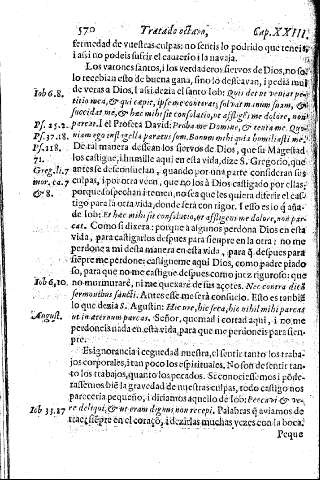 570 Tratado octavo, Cap. XXIII.
fermedad de vuestras culpas: no sentis lo podrido que teneis,
i assi no podeis sufrir el cauterio i la navaja.
Los varones santos, i los verdaderos siervos de Dios, no so-
lo recebian esto de buena gana, sino lo desseavan, i pedia mui
Iob 6.8. de veras a Dios, I assi dezia el santo Iob: Quis det ut veniat pe-
titio mea, & qui cœpit, ipse me conterat, solvat manum suam, &
succidat me, & hæc mihi sit consolatio, ut affligens me dolore, non
Ps. 25.2. parcat. I el Profeta David: Proba me Domine, & tenta me. Quo-
Ps. 37.18 niam ego in flagella paratus sum. Bonum mihi quia humiliasti me.
Ps. 118. De tal manera dessean los siervos de Dios, que su Magestad
71. los castigue, i humille aqui en esta vida, dize S. Gregorio, que
Greg. li. 7 antes se desconsuelan, quando por una parte consideran sus
mor. ca. 7 culpas, i por otra veen, que no los à Dios castigado por ellas;
& 8. porque sospechan i temen, no sea que les quiera diferir el cas-
tigo para la otra vida, donde serà con rigor. I esso es lo q̃ aña-
de Iob: Et hæc mihi sit consolatio, ut affligens me dolore, non par-
cat. Como si dixera: porque a algunos perdona Dios en esta
vida, para castigarlos despues para siempre en la otra; no me
perdone a mi desta manera en esta vida, para q̃ despues para
siẽpre me perdone: castigueme aqui Dios, como padre piado
so, para que no me castigue despues como juez riguroso: que
Iob 6,10. no murmurarè, ni me quexarè de sus açotes. Nec contra dicã
sermonibus sancti. Antes esse me serà consuelo. Esto es tambiẽ
lo que dezia S. Agustin: Hic ure, hic seca, hic nihil mihi parcas
August. ut in æternum parcas. Señor, quemad i cortad aqui, i no me
perdoneis nada en esta vida, para que me perdoneis para siem-
pre.
Es ignorancia i ceguedad nuestra, el sentir tanto los traba-
jos corporales, i tan poco los espirituales. No son de sentir tan-
to los trabajos, quanto los pecados. Si conociessemos i põde-
rassemos biẽ la gravedad de nuestras culpas, todo castigo nos
pareceria pequeño, i diriamos aquello de Iob: Peccavi & ve-
Iob 33.27 re deliqui, & ut eram dignus non recepi. Palabras q̃ aviamos de
traer siẽpre en el coraçõ, i dezirlas muchas vezes con la boca.
Peque